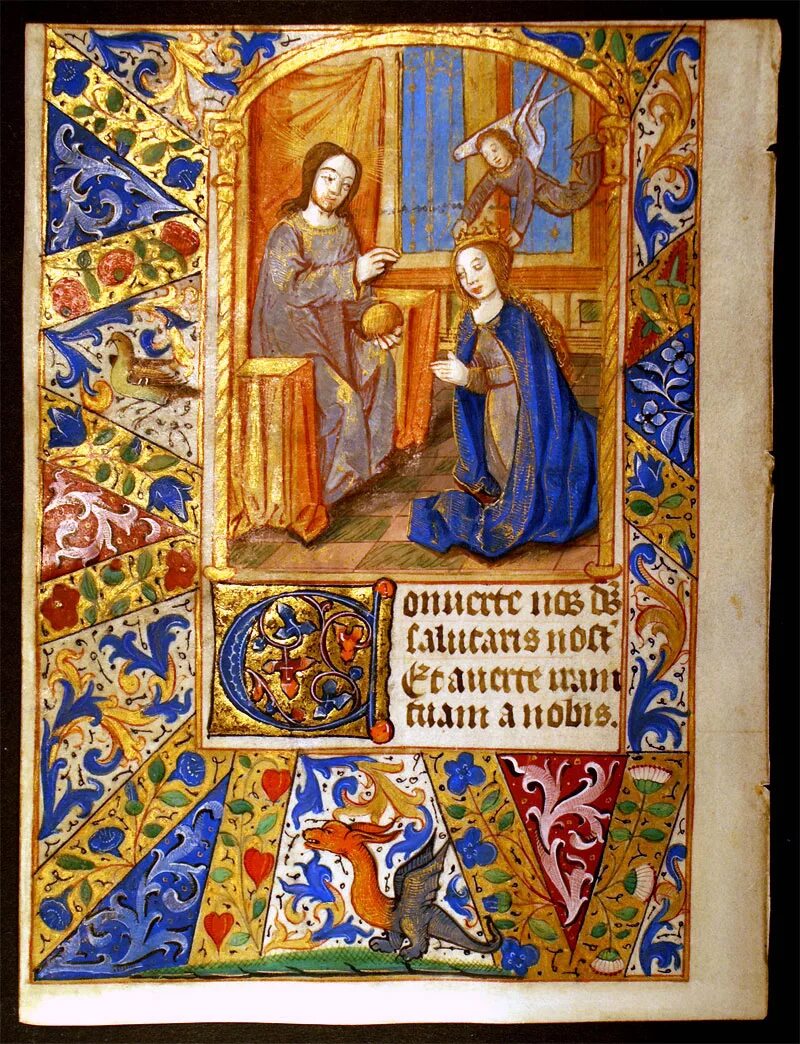 Conuerte nos ds
salutaris nost
Et auerte iram
tuam a nobis.